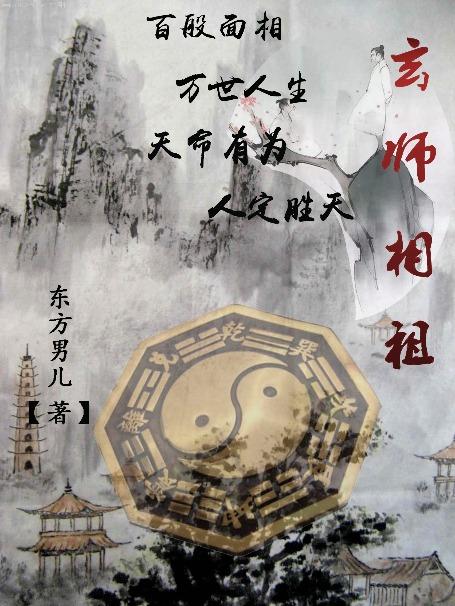 百般面相
万世人生
天命有为
人定胜天
玄师相祖
东方男儿
【著】
乾
巽